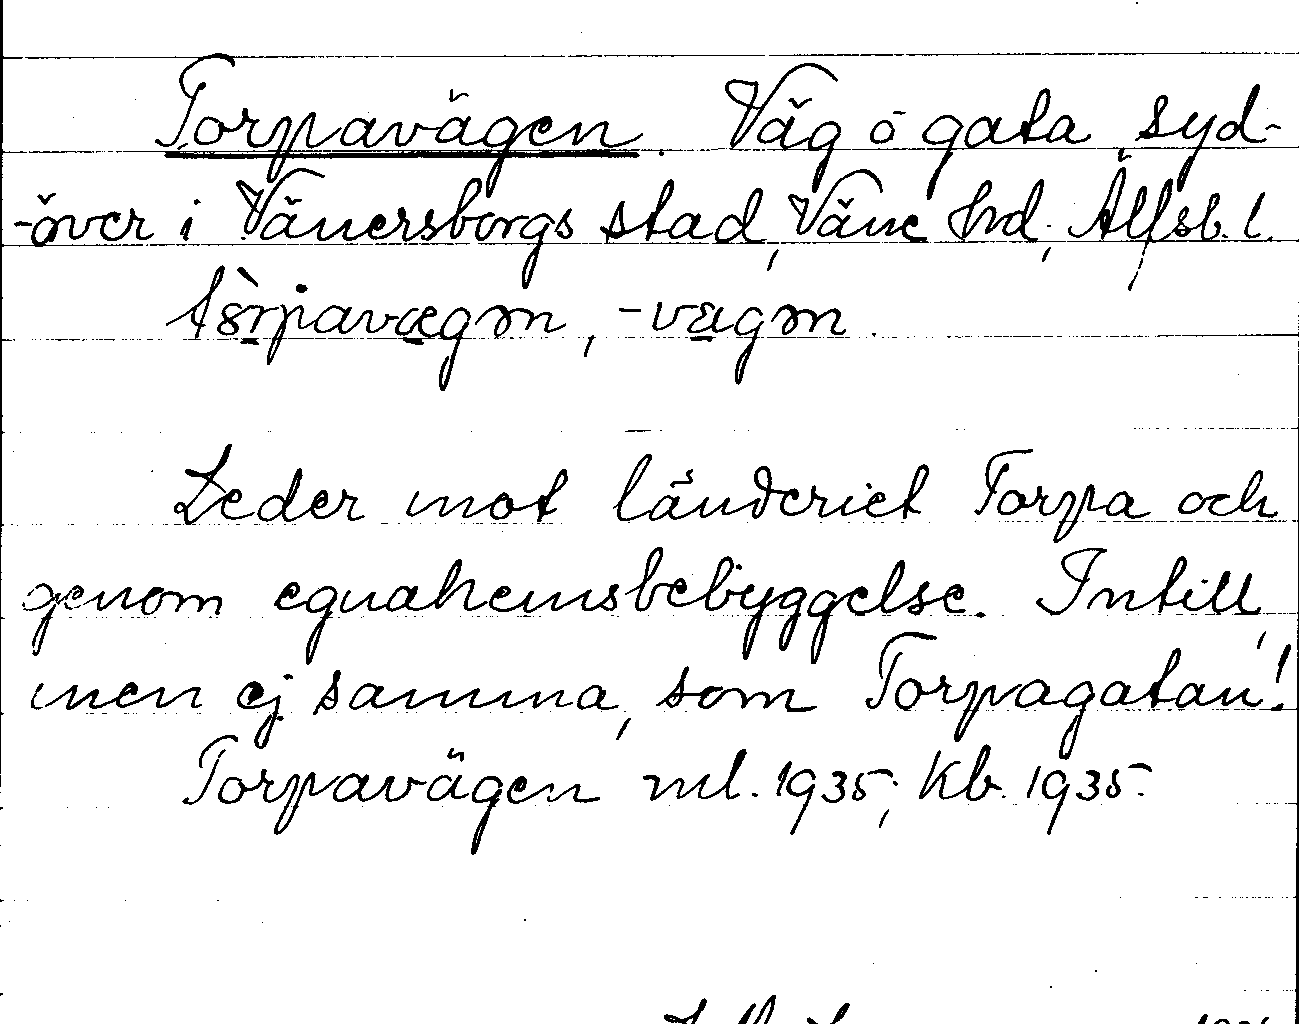 Torpavägen. Väg o gata syd-
-över i Vänersborgs stad, Väne hd, Älfsb. l.
tòrpavægən, -vagən.
Leder mot länderiet Torpa och
genom egnahemsbebyggelse. Intill,
men ej samma, som Torpagatan!
Torpavägen ml. 1935; Kb. 1935.